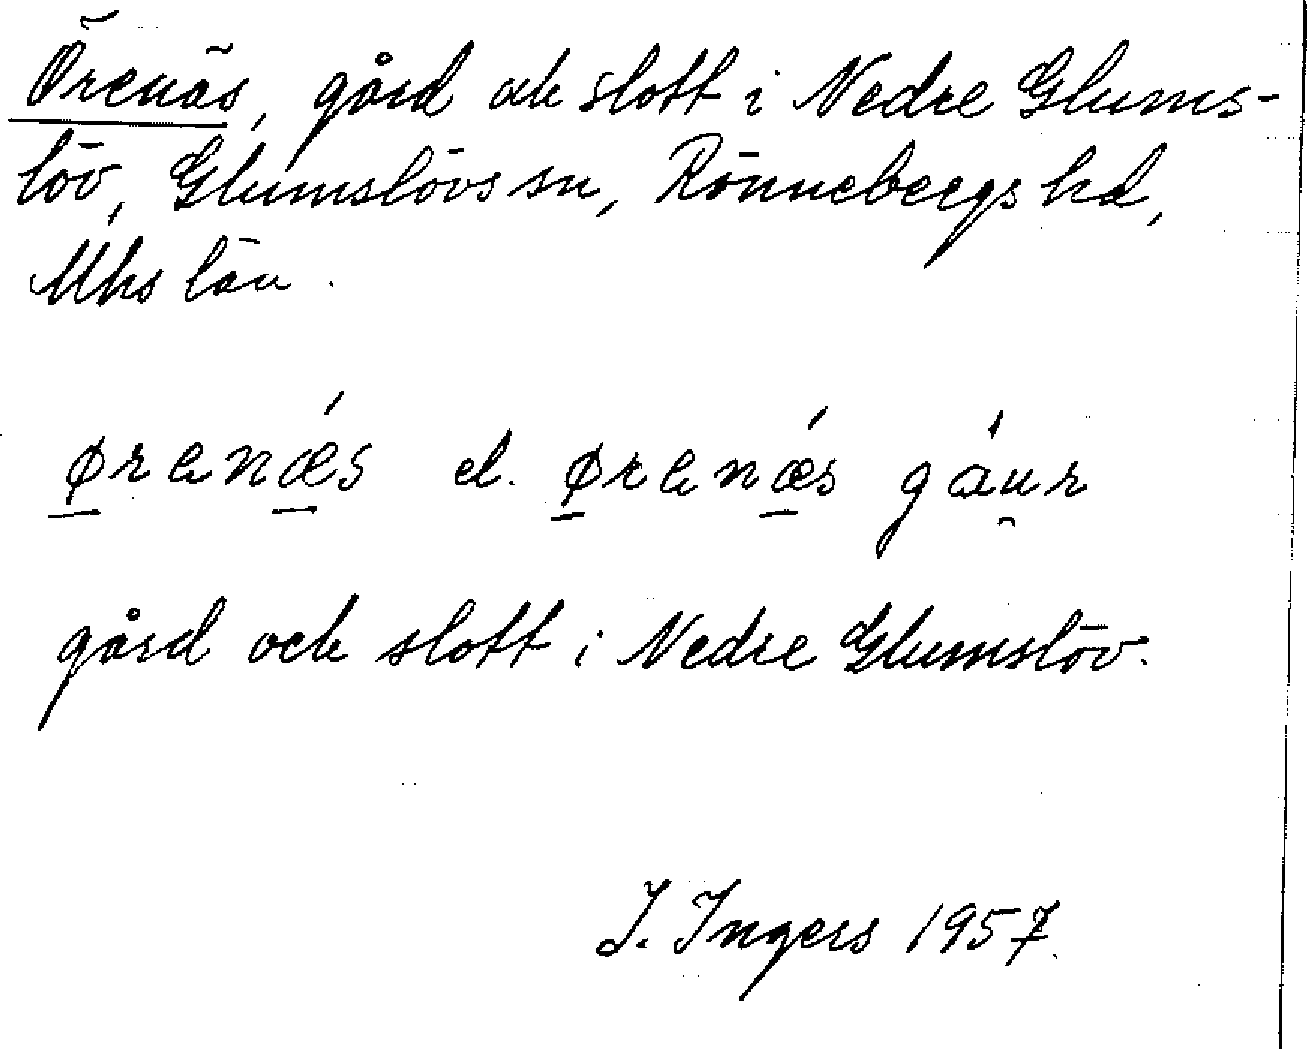 Örenäs, gård och slott i Nedre Glums-
löv, Glumslövs sn, Rönnebergs hd,
Mhs län.
ørenǽ̱s el. ørenǽ̱s gáu̯r
gård och slott i Nedre Glumslöv.
I. Ingers 1957.